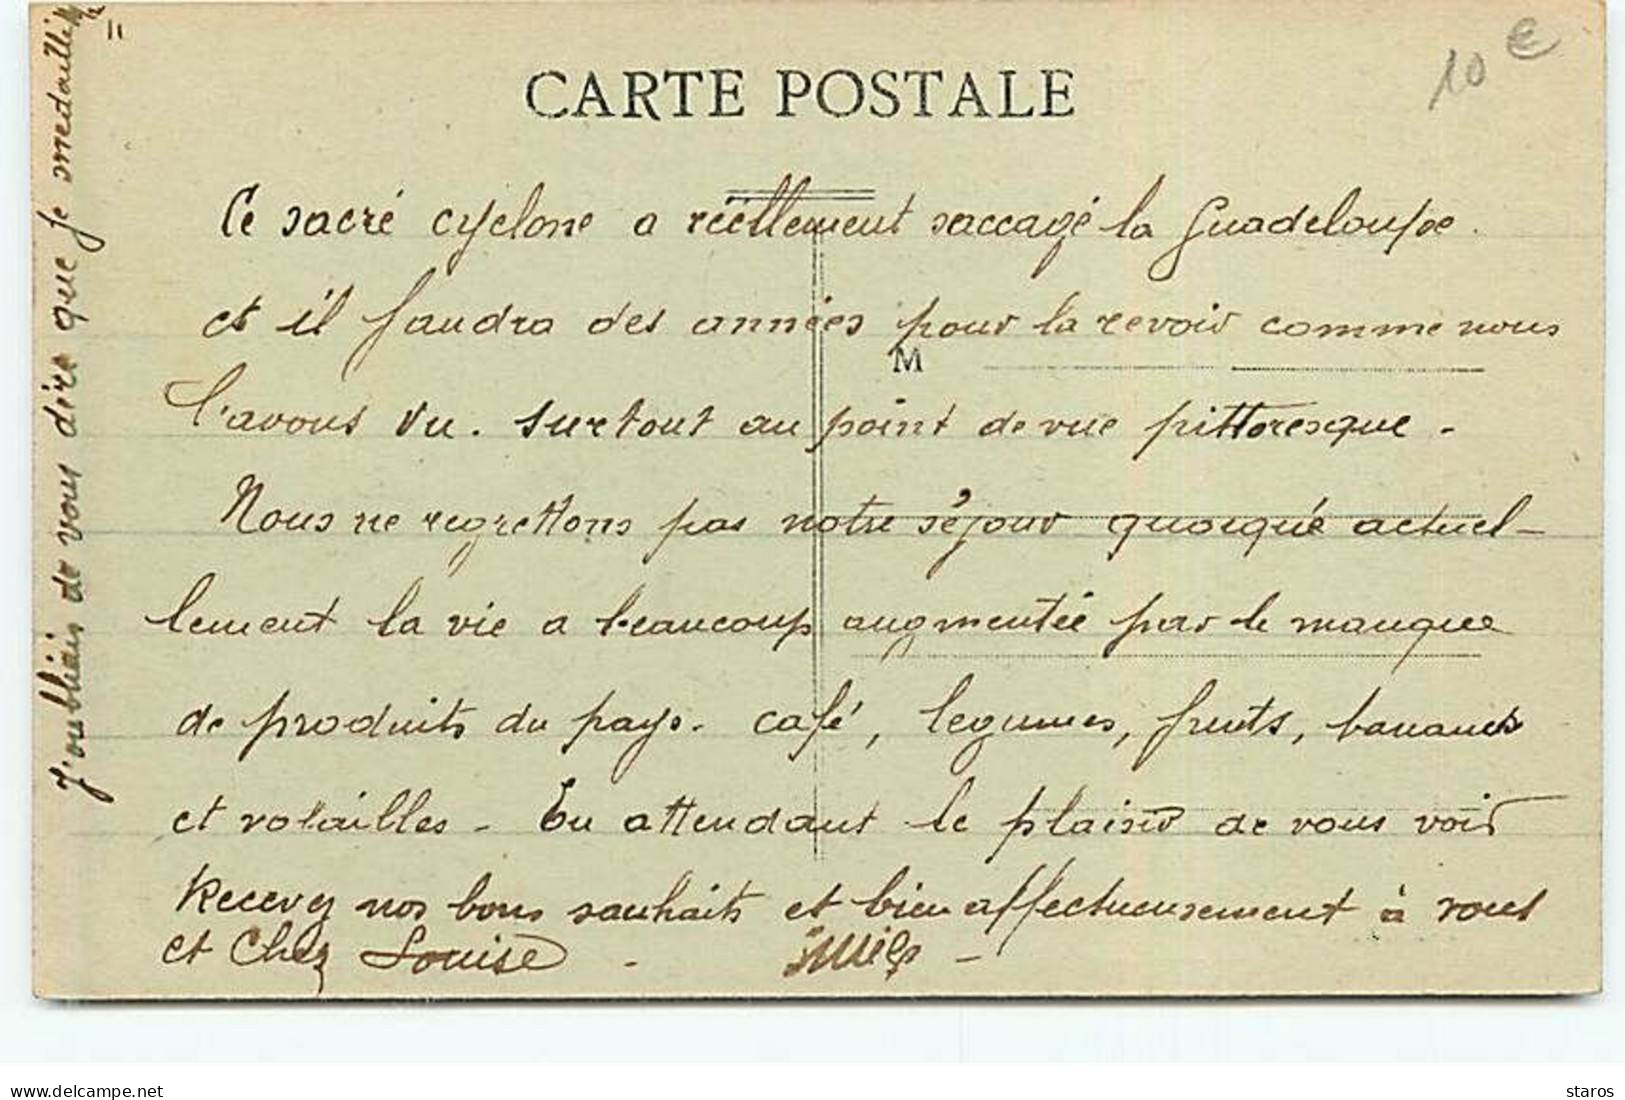 CARTE POSTALE
10 €
Ce sacré cyclone a réellement saccagé la Guadeloupe.
et il faudra des années pour la revoir comme nous
M
l'avons vu. surtout au point de vue pittoresque -
Nous ne regrettons pas notre séjour quoique actuel-
lement la vie a beaucoup augmentée par le manque
de produits du pays. café, legumes, fruits, bananes
et volailles - En attendant le plaisir de vous voir
Recevez nos bons souhaits et bien affectueusement à vous
et Chez Louise -
J'oubliais de vous dire que je
www.delcampe.net
staros